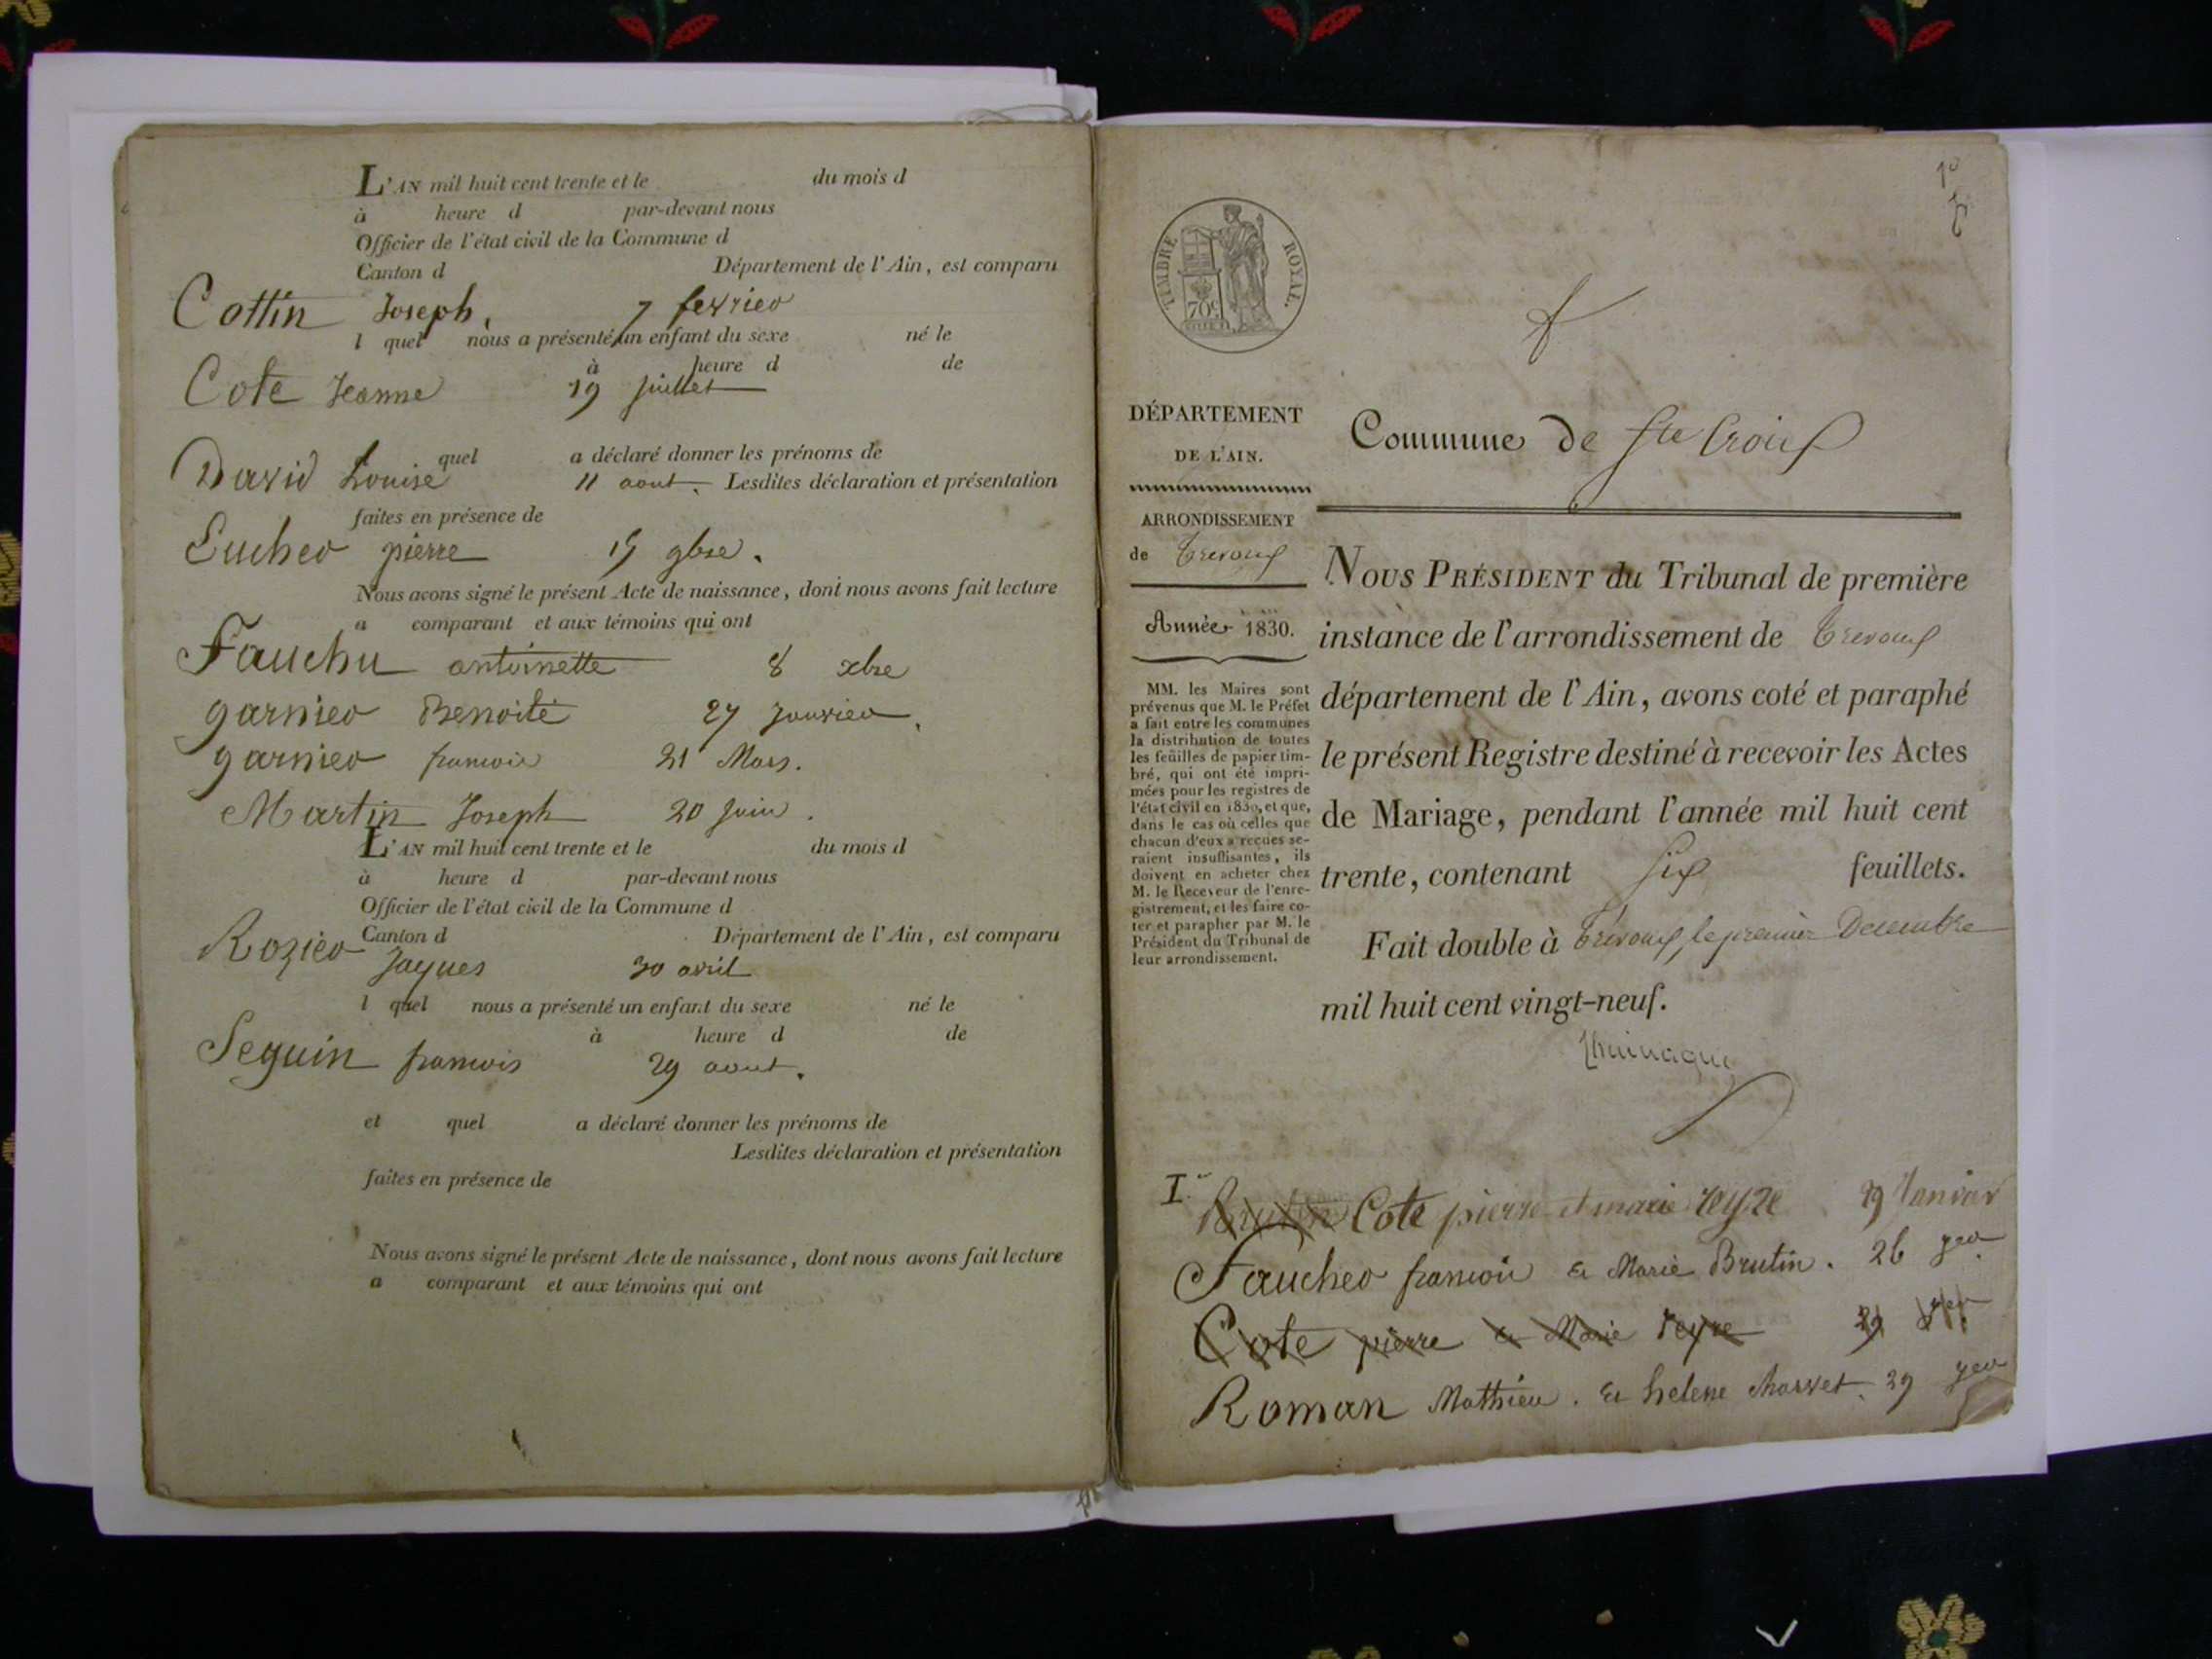 L'AN mil huit cent trente et le du mois d
à heure d par-devant nous
Officier de l'état civil de la Commune d
Canton d Département de l'Ain, est comparu
Cottin Joseph, 7 fevrier
l quel nous a présenté un enfant du sexe né le
à heure d de
Cote Jeanne 19 juillet
quel a déclaré donner les prénoms de
David Louise 11 aout. Lesdites déclaration et présentation
faites en présence de
Eucher pierre 19 9bre.
Nous avons signé le présent Acte de naissance, dont nous avons fait lecture
a comparant et aux témoins qui ont
Fauchu antoinette 8 xbre
garnier Benoite 27 Janvier.
garnier francois 21 Mars.
Martin Joseph 20 juin.
L'AN mil huit cent trente et le du mois d
à heure d par-devant nous
Officier de l'état civil de la Commune d
Canton d Département de l'Ain, est comparu
Rozier Jaques 30 avril
l quel nous a présenté un enfant du sexe né le
à heure d de
Seguin francois 29 aout.
et quel a déclaré donner les prénoms de
Lesdites déclaration et présentation
faites en présence de
Nous avons signé le présent Acte de naissance, dont nous avons fait lecture
a comparant et aux témoins qui ont
TIMBRE ROYAL.
70c
DÉPARTEMENT
DE L'AIN.
ARRONDISSEMENT
de Trevoux
Année 1830.
MM. les Maires sont
prévenus que M. le Préfet
a fait entre les communes
la distribution de toutes
les feuilles de papier tim-
bré, qui ont été impri-
mées pour les registres de
l'état civil en 1830, et que,
dans le cas où celles que
chacun d'eux a reçues se-
raient insuffisantes, ils
doivent en acheter chez
M. le Receveur de l'enre-
gistrement, et les faire co-
ter et parapher par M. le
Président du Tribunal de
leur arrondissement.
Commune de Ste Croix
NOUS PRÉSIDENT du Tribunal de première
instance de l'arrondissement de Trevoux
département de l'Ain, avons coté et paraphé
le présent Registre destiné à recevoir les Actes
de Mariage, pendant l'année mil huit cent
trente, contenant six feuillets.
Fait double à Trévoux, le premier Decembre
mil huit cent vingt-neuf.
I. Brutin Cote pierre et marie Teyre 19 Janvier
Faucher francois & Marie Brutin. 26 jer
Cote pierre & Marie Teyre 29 jer
Roman Mathieu. & helene 29 jer